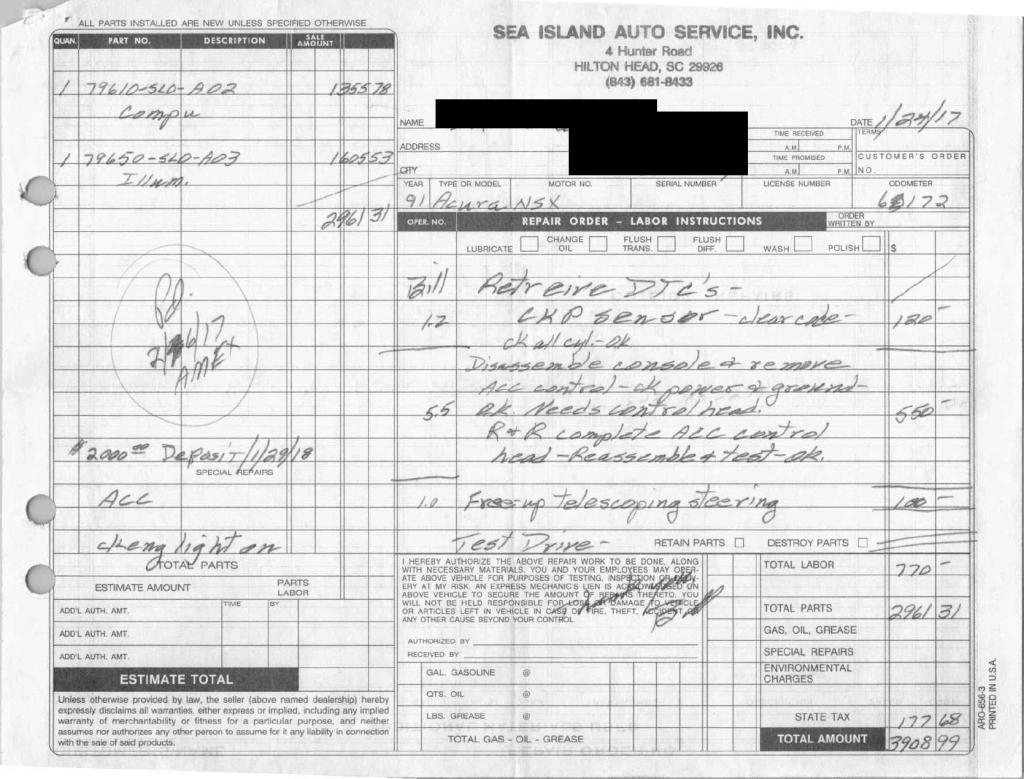 ALL PARTS INSTALLED ARE NEW UNLESS SPECIFIED OTHERWISE
QUAN. PART NO. DESCRIPTION SALE AMOUNT
1 79610-SL0-A02 1355 78
Compu
1 79650-SL0-A03 1605 53
Illum.
2961 31
Pd.
2/ 6/17
AMEX
$2000 00 Deposit 1/29/18
SPECIAL REPAIRS
ACC
ck eng light on
TOTAL PARTS
ESTIMATE AMOUNT PARTS LABOR
TIME BY
ADD'L AUTH. AMT.
ADD'L AUTH. AMT.
ADD'L AUTH. AMT.
ESTIMATE TOTAL
Unless otherwise provided by law, the seller (above named dealership) hereby
expressly disclaims all warranties, either express or implied, including any implied
warranty of merchantability or fitness for a particular purpose, and neither
assumes nor authorizes any other person to assume for it any liability in connection
with the sale of said products.
SEA ISLAND AUTO SERVICE, INC.
4 Hunter Road
HILTON HEAD, SC 29926
(843) 681-8433
NAME DATE 1/24/17
ADDRESS TIME RECEIVED A.M. P.M. TERMS
TIME PROMISED A.M. P.M. CUSTOMER'S ORDER NO.
CITY
YEAR TYPE OR MODEL MOTOR NO. SERIAL NUMBER LICENSE NUMBER ODOMETER
91 Acura NSX 172
OPER. NO. REPAIR ORDER - LABOR INSTRUCTIONS ORDER WRITTEN BY
LUBRICATE CHANGE OIL FLUSH TRANS. FLUSH DIFF. WASH POLISH $
Bill Retreive DTC's -
1.2 CKP sensor - clear code - 120 -
ck all cyl. - ok
Disassemble console & remove
ACC control - ck power & ground -
5.5 ok. Needs control head. 550 -
R & R complete ACC control
head - Reassemble & test - ok.
1.0 Free up telescoping steering 100 -
Test Drive - RETAIN PARTS DESTROY PARTS
I HEREBY AUTHORIZE THE ABOVE REPAIR WORK TO BE DONE, ALONG
WITH NECESSARY MATERIALS. YOU AND YOUR EMPLOYEES MAY OPER-
ATE ABOVE VEHICLE FOR PURPOSES OF TESTING, INSPECTION OR DELIV-
ERY AT MY RISK. AN EXPRESS MECHANIC'S LIEN IS ACKNOWLEDGED ON
ABOVE VEHICLE TO SECURE THE AMOUNT OF REPAIRS THERETO. YOU
WILL NOT BE HELD RESPONSIBLE FOR LOSS OR DAMAGE TO VEHICLE
OR ARTICLES LEFT IN VEHICLE IN CASE OF FIRE, THEFT, ACCIDENT OR
ANY OTHER CAUSE BEYOND YOUR CONTROL.
AUTHORIZED BY
RECEIVED BY
GAL. GASOLINE @
QTS. OIL @
LBS. GREASE @
TOTAL GAS - OIL - GREASE
TOTAL LABOR 770 -
TOTAL PARTS 2961 31
GAS, OIL, GREASE
SPECIAL REPAIRS
ENVIRONMENTAL CHARGES
STATE TAX 177 68
TOTAL AMOUNT 3908 99
ARO-656-3
PRINTED IN U.S.A.